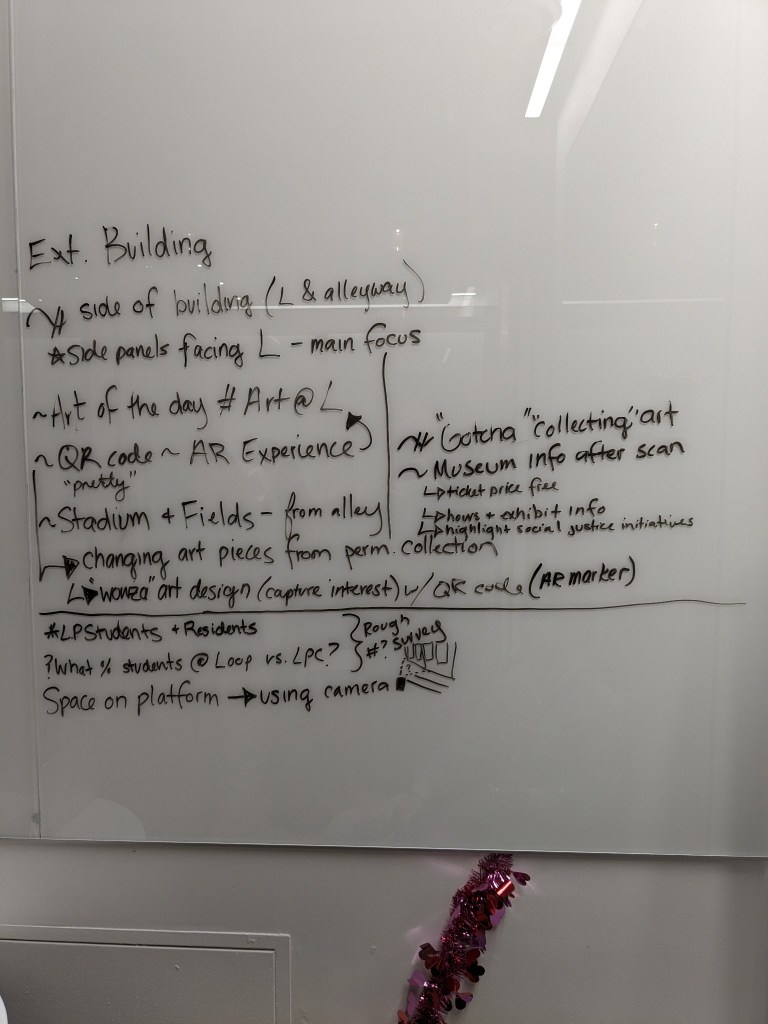 Ext. Building
side of building (L & alleyway)
☆Side panels facing L - main focus
~Art of the day # Art@L
~QR code ~ AR Experience
"pretty"
~Stadium + Fields - from alley
changing art pieces from perm. collection
art design (capture interest) w/ QR code (AR marker)
"Gotcha" "collecting" art
~ Museum info after scan
↳ticket price free
↳hours + exhibit info
↳highlight social justice initiatives
#LPStudents + Residents
?What % students @ Loop vs. LPC?
Rough
#? Survey
Space on platform → using camera